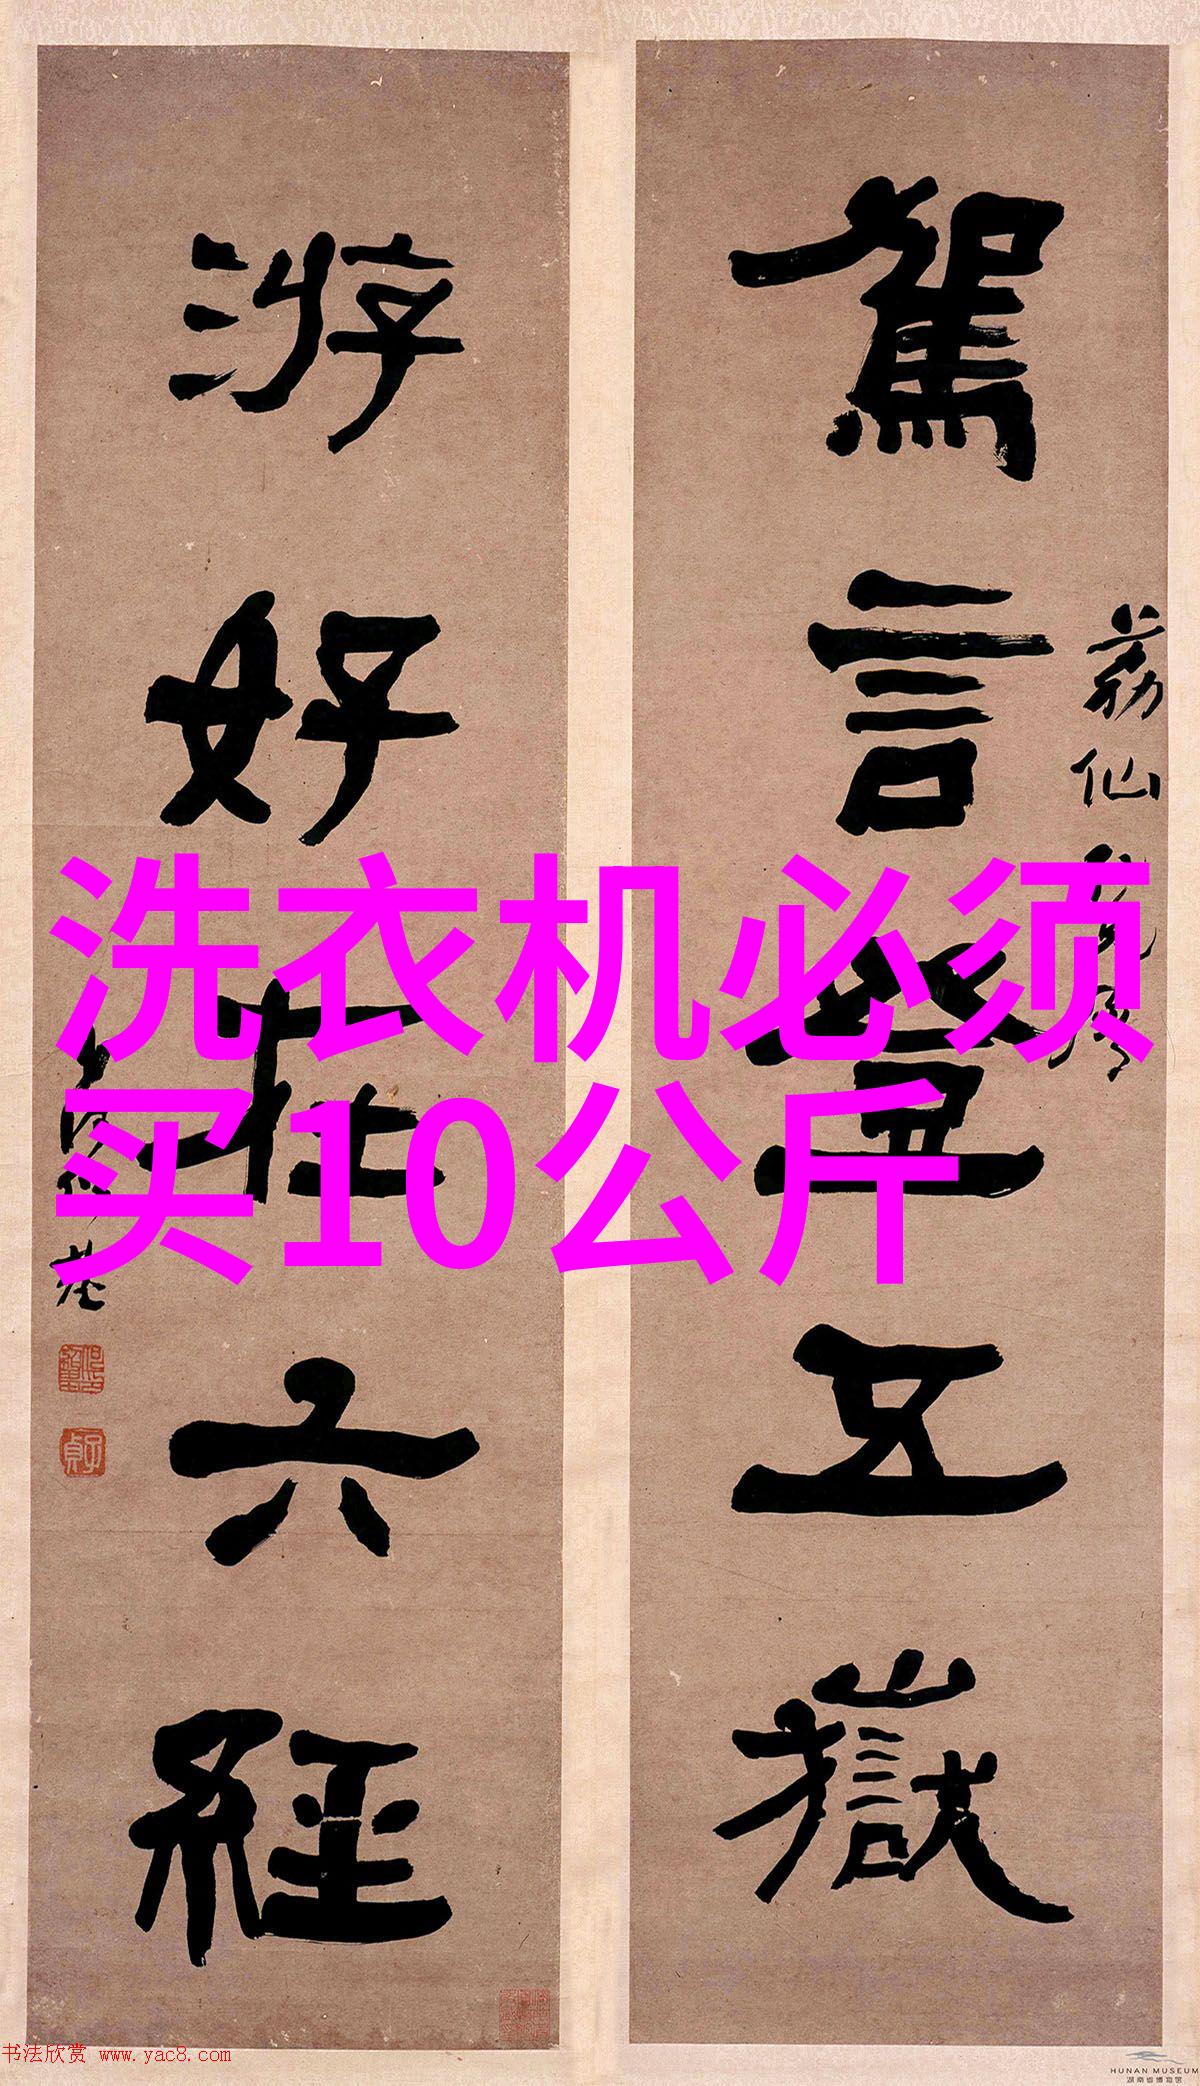 駕言登五嶽
荔仙
游好在六經
洗衣机必须
买10公斤
书法欣赏 www.yac8.com
HUNAN MUSEUM
湖南省博物馆